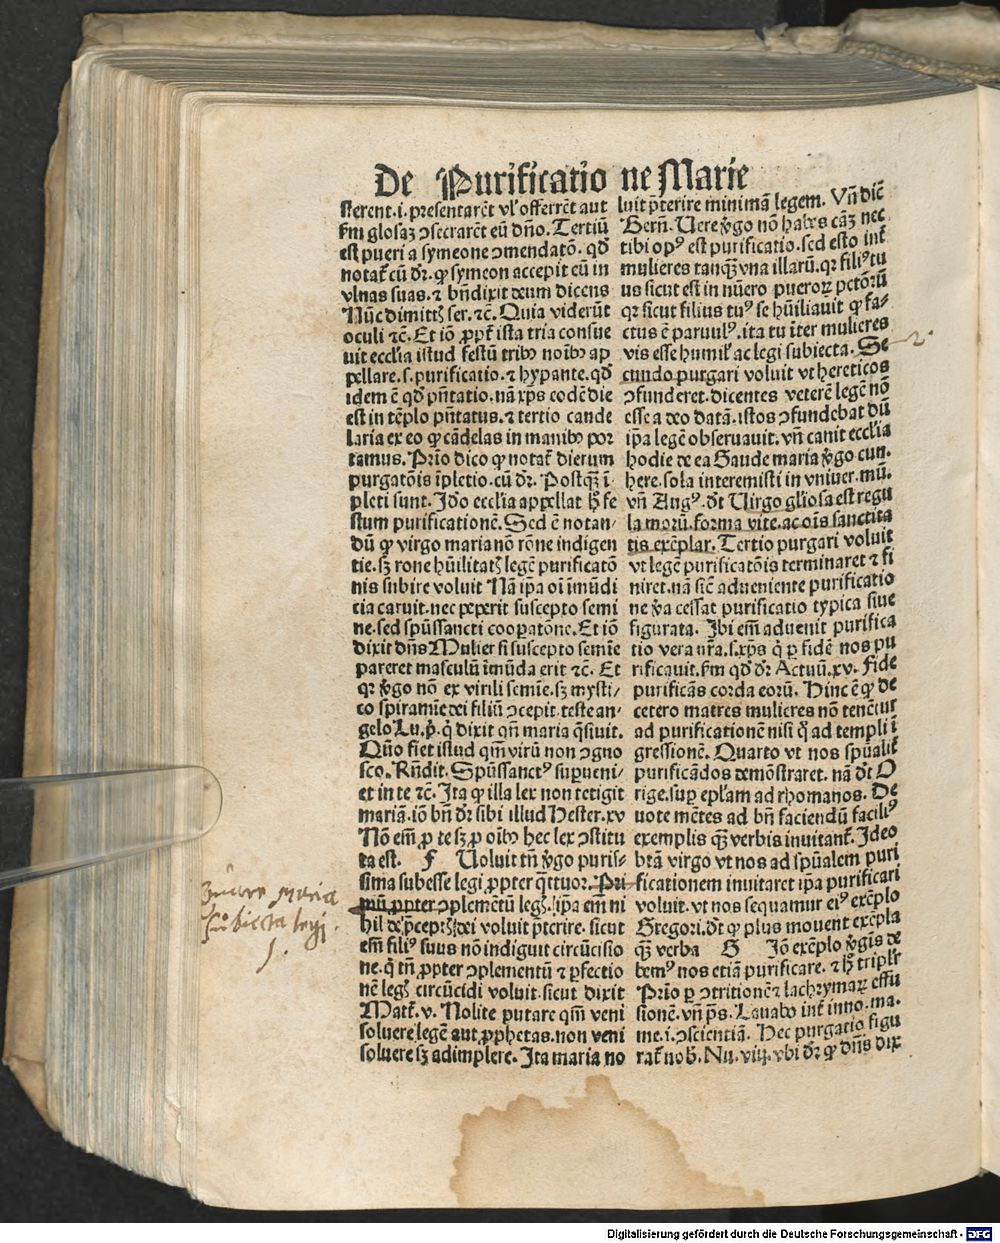 De Purificatio ne Marie
sterent .i. presentarēt vl' offerrēt aut
fm glosaꝫ ↄsecrarēt eū dn̄o. Tertiū
est pueri a symeone ↄmendatō. qd̛
notat̃ cū dr̄. ꝙ symeon accepit eū in
vlnas suas. ⁊ bn̄dixit deum dicens
Nūc dimittꝭ ser. ⁊c. Quia viderūt
oculi ⁊c. Et iō ꝓpt̃ ista tria consue
uit eccl'ia istud festū tribꝰ noībꝰ ap
pellare. s. purificatio. ⁊ hypante. qd̛
idem ē qd̛ pn̄tatio. nā xp̄s eodē die
est in tēplo pn̄tatus. ⁊ tertio cande
laria ex eo ꝙ cādelas in manibꝰ por
tamus. Prīo dico ꝙ notat̃ dierum
purgatōis īpletio. cū dr̄. Postqꝫ ī
pleti sunt. Jdo eccl'ia appellat hꝭ fe
stum purificationē. Sed ē notan-
dū ꝙ virgo maria nō rōne indigen
tie. sꝫ rone hūilitatꝭ legē purificatō
nis subire voluit Nā ip̄a oī īmūdi
cia caruit. nec peperit suscepto semi
ne. sed spūssancti cooꝑatōne. Et iō
dixit dn̄s Mulier si suscepto semīe
pareret masculū īmūda erit ⁊c. Et
qꝛ v̛go nō ex virili semīe. sꝫ mysti/
co spiramīe dei filiū ↄcepit. teste an-
gelo Lu. p̛. q̄ dixit qn̄ maria q̄siuit.
Quō fiet istud qm̄ virū non ↄgno
sco. Rn̄dit. Spūssanctꝰ suꝑueni/
et in te ⁊c. Jta ꝙ illa lex non tetigit
mariā. iō bn̄ dr̄ sibi illud Hester. xv
Nō em̄ ꝓ te sꝫ ꝓ oībꝰ hec lex ↄstitu
ta est. F Uoluit tn̄ v̛go puris-
sima subesse legi ꝓpter q̄ttuor. Pri
mū ꝓpter ↄplemētū legꝭ. ip̄a em̄ ni
hil de p̄ceptꝭ dei voluit p̄terire. sicut
em̄ filiꝰ suus nō indiguit circūcisio
ne. q̄ tn̄ ꝓpter ↄplementū ⁊ ꝑfectio
nē legꝭ circūcidi voluit. sicut dixit
Matt̃. v. Nolite putare qm̄ veni
soluere legē aut ꝓphetas. non veni
soluere sꝫ adimplere. Jta maria no
luit p̄terire minimā legem. Vn̄ dic̄
Bern̄. Uere v̛go nō habes cāꝫ nec
tibi opꝰ est purificatio. sed esto int̃
mulieres tanqꝫ vna illarū. qꝛ filiꝰ tu
us sicut est in nūero pueroꝝ pctōrū
qꝛ sicut filius tuꝰ se hūiliauit ꝙ fa-
ctus ē paruulꝰ. ita tu īter mulieres
vis esse humil' ac legi subiecta. Se
cundo purgari voluit vt hereticos
ↄfunderet. dicentes veterē legē nō
esse a deo datā. istos ↄfundebat dū
ip̄a legē obseruauit. vn̄ canit eccl'ia
hodie de ea Gaude maria v̛go cun.
here. sola interemisti in vniuer. mū.
vn̄ Augꝰ. dt̃ Uirgo gl'iosa est regu
la morū. forma vite. ac oīs sanctita
tis exēplar. Tertio purgari voluit
vt legē purificatōis terminaret ⁊ fi
niret. nā sic̄ adueniente purificatio
ne v̛a cessat purificatio typica siue
figurata. Jbi em̄ aduenit purifica
tio vera nr̄a. s. xp̄s q̄ ꝑ fidē nos pu
rificauit. fm qd̛ dr̄ Actuū. xv. Fide
purificās corda eorū. Hinc ē ꝙ de
cetero matres mulieres nō tenētur
ad purificationē nisi q̄ ad templi ī
gressionē. Quarto vt nos spūalit̃
purificādos demōstraret. nā dt̃ O
rige. suꝑ epl'am ad rhomanos. De
uote mētes ad bn̄ faciendū faciliꝰ
exemplis qꝫ verbis inuitant̃. Jdeo
btā virgo vt nos ad spūalem puri
ficationem inuitaret ip̄a purificari
voluit. vt nos sequamur eiꝰ exēplo
Gregori. dt̃ ꝙ plus mouent exēpla
qꝫ verba G Jō exēplo v̛gīs de
bemꝰ nos etiā purificare. ⁊ hꝭ triplr̄
Prīo ꝑ ↄtritionē ⁊ lachrymaꝝ effu
sionē. vn̄ ps̄. Lauabo int̃ inno. ma.
me. i. ↄscientiā. Hec purgatio figu
rat̃ nob̄. Nu. viij. vbi dr̄ ꝙ dn̄s dix
2.
maria
subiecta legi.
1.
Digitalisierung gefördert durch die Deutsche Forschungsgemeinschaft - DFG